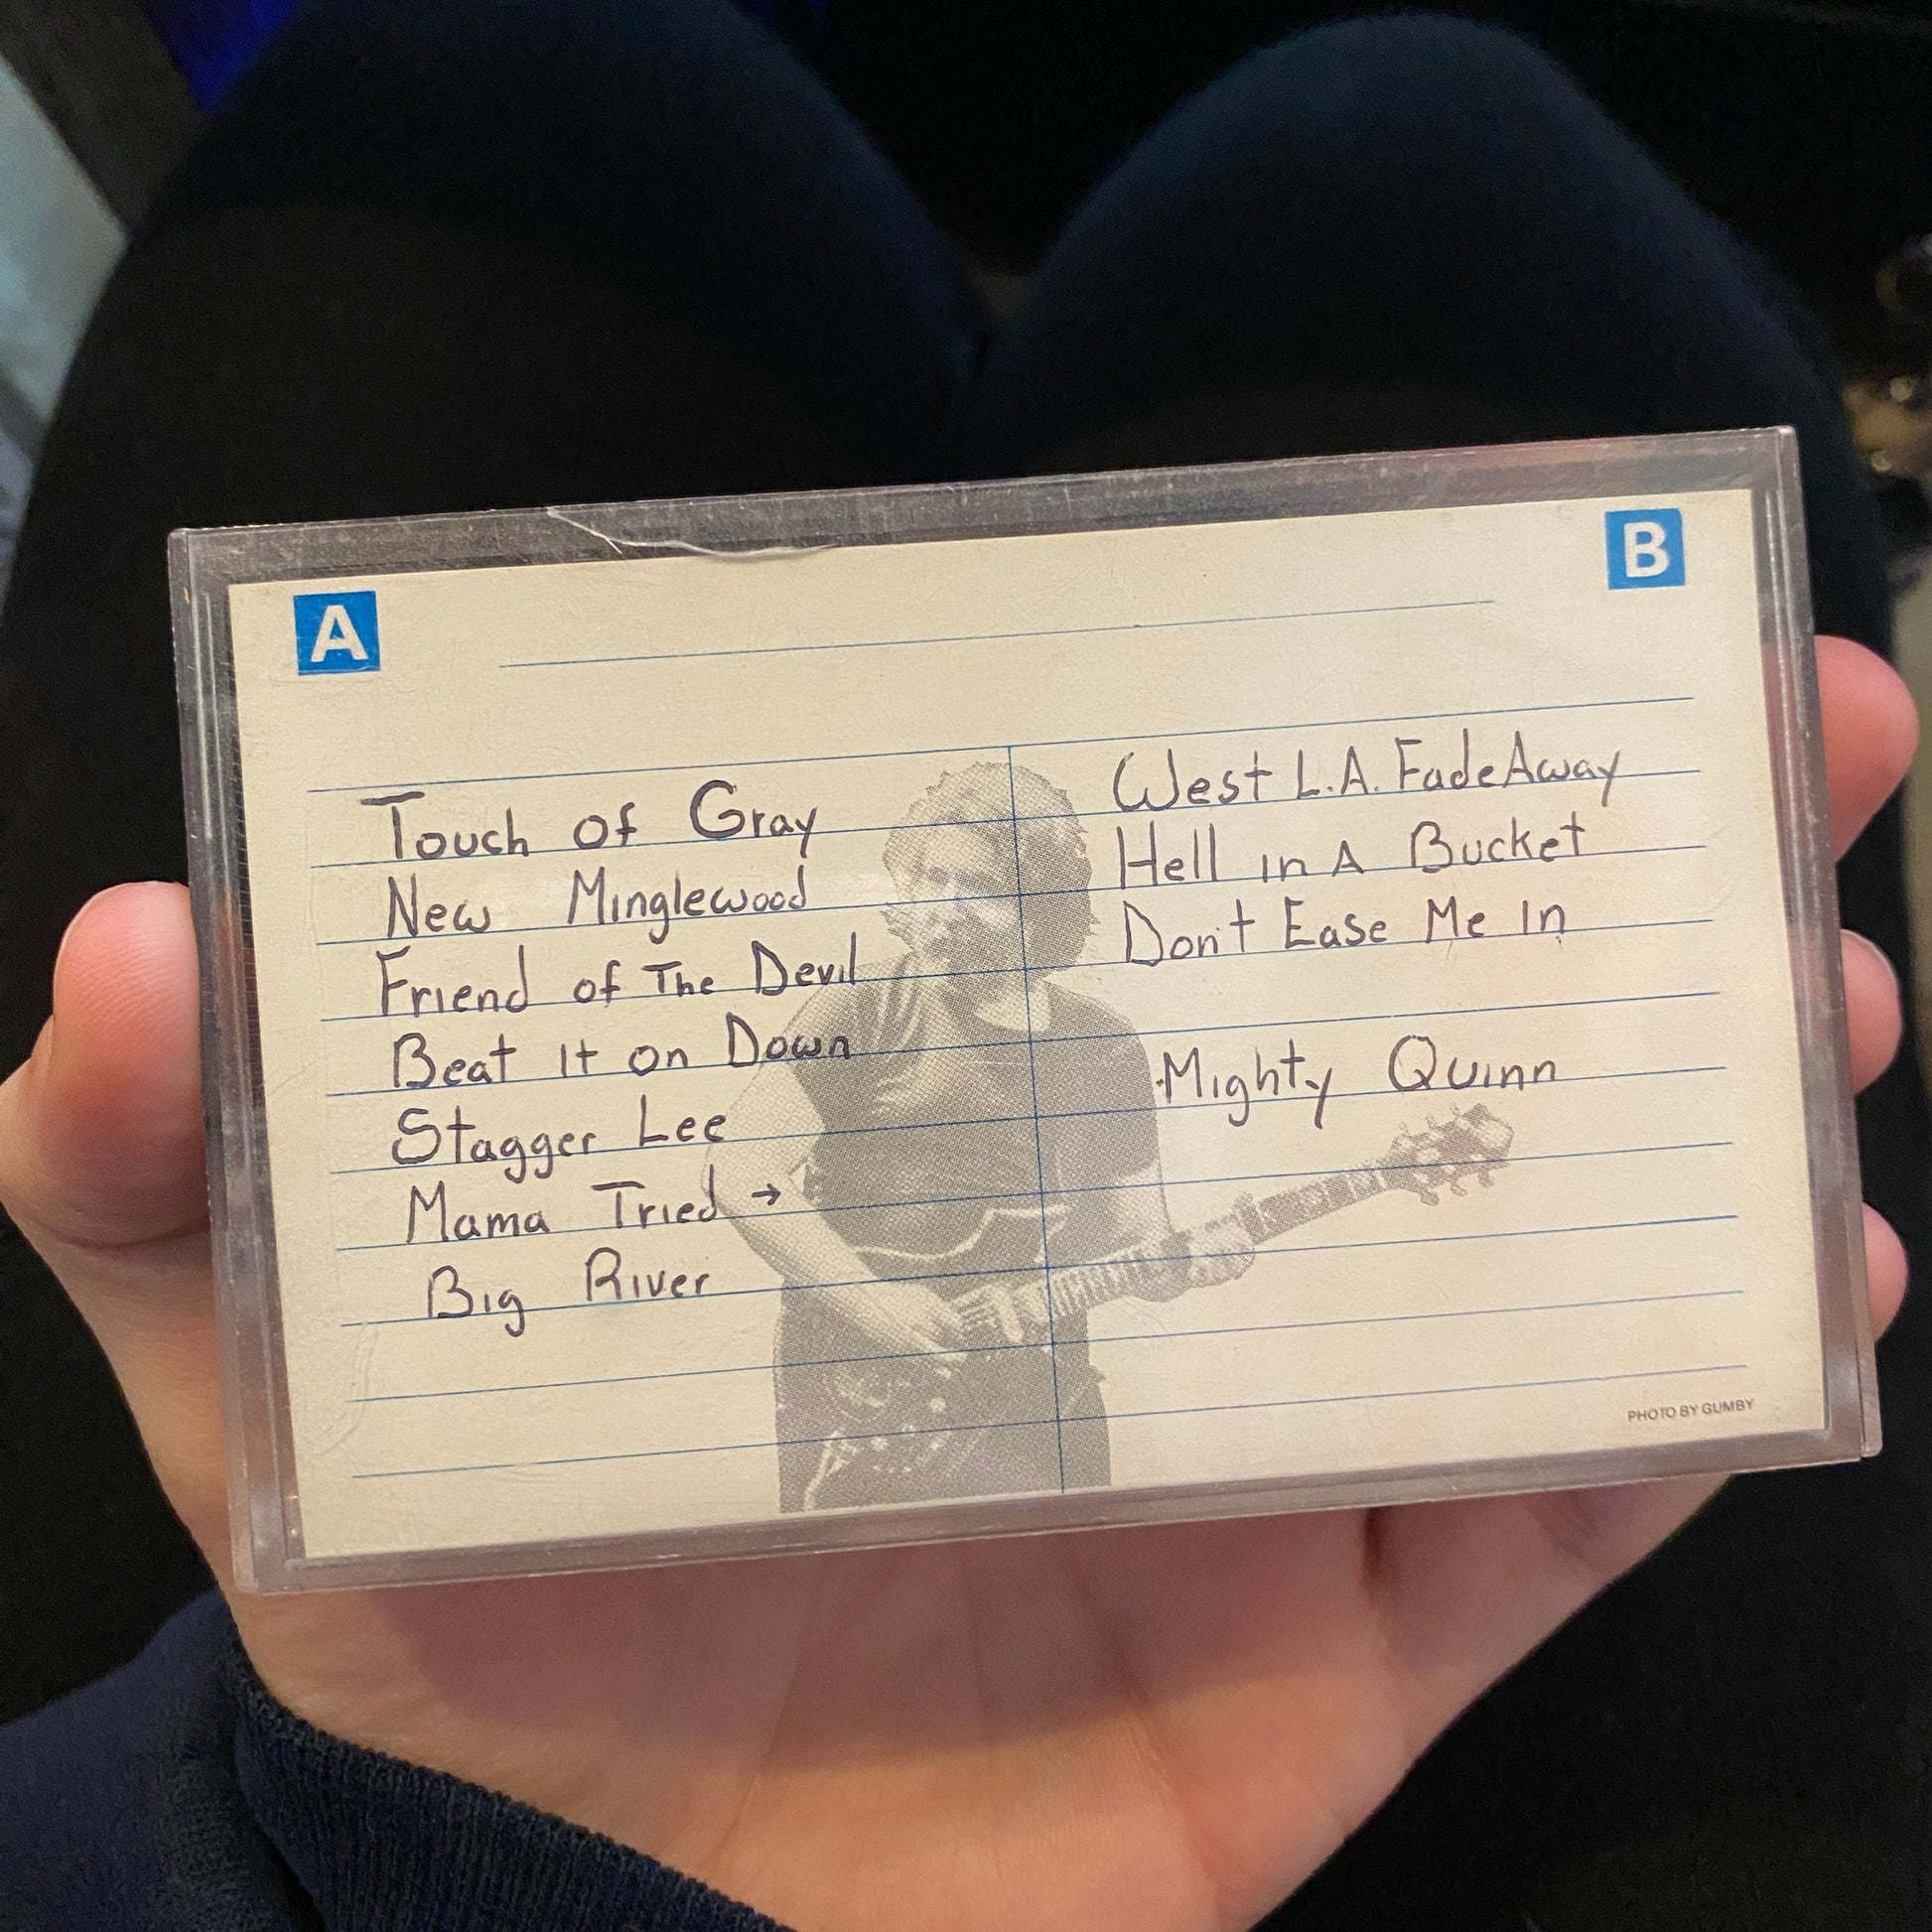 A
B
Touch of Gray
New Minglewood
Friend of The Devil
Beat It on Down
Stagger Lee
Mama Tried →
Big River
West L.A. FadeAway
Hell in A Bucket
Don't Ease Me In
Mighty Quinn
PHOTO BY GUMBY